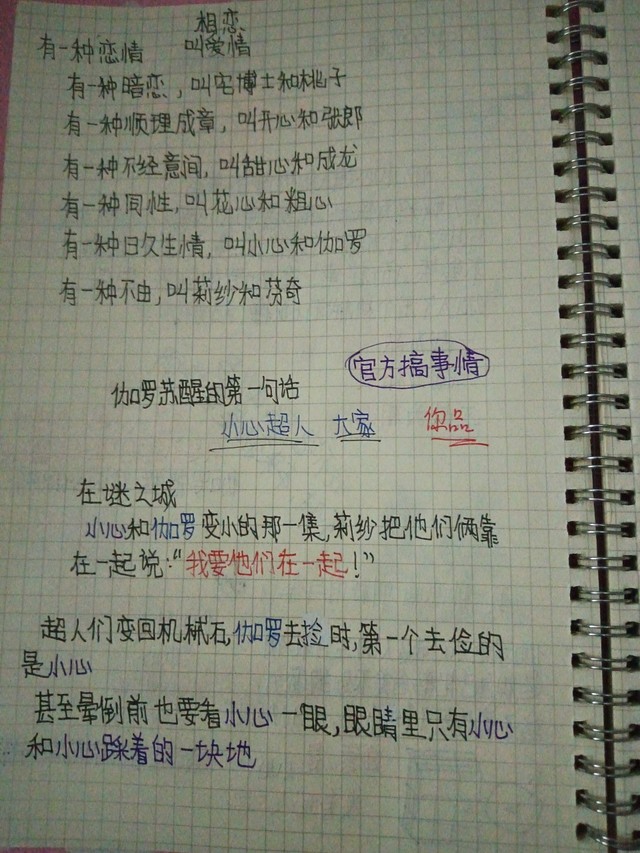 相恋
有一种恋情 叫爱情
有一种暗恋，叫宅博士和桃子
有一种顺理成章，叫开心和张郎
有一种不经意间，叫甜心和成龙
有一种同性，叫花心和粗心
有一种日久生情，叫小心和伽罗
有一种不由，叫莉纱和芬奇
官方搞事情
伽罗苏醒的第一句话
小心超人 大家 你品
在谜之城
小心和伽罗变小的那一集，莉纱把他们俩靠
在一起说：“我要他们在一起！”
超人们变回机械石，伽罗去捡时，第一个去俭的
是小心
甚至晕倒前也要看小心一眼，眼睛里只有小心
和小心踩着的一块地